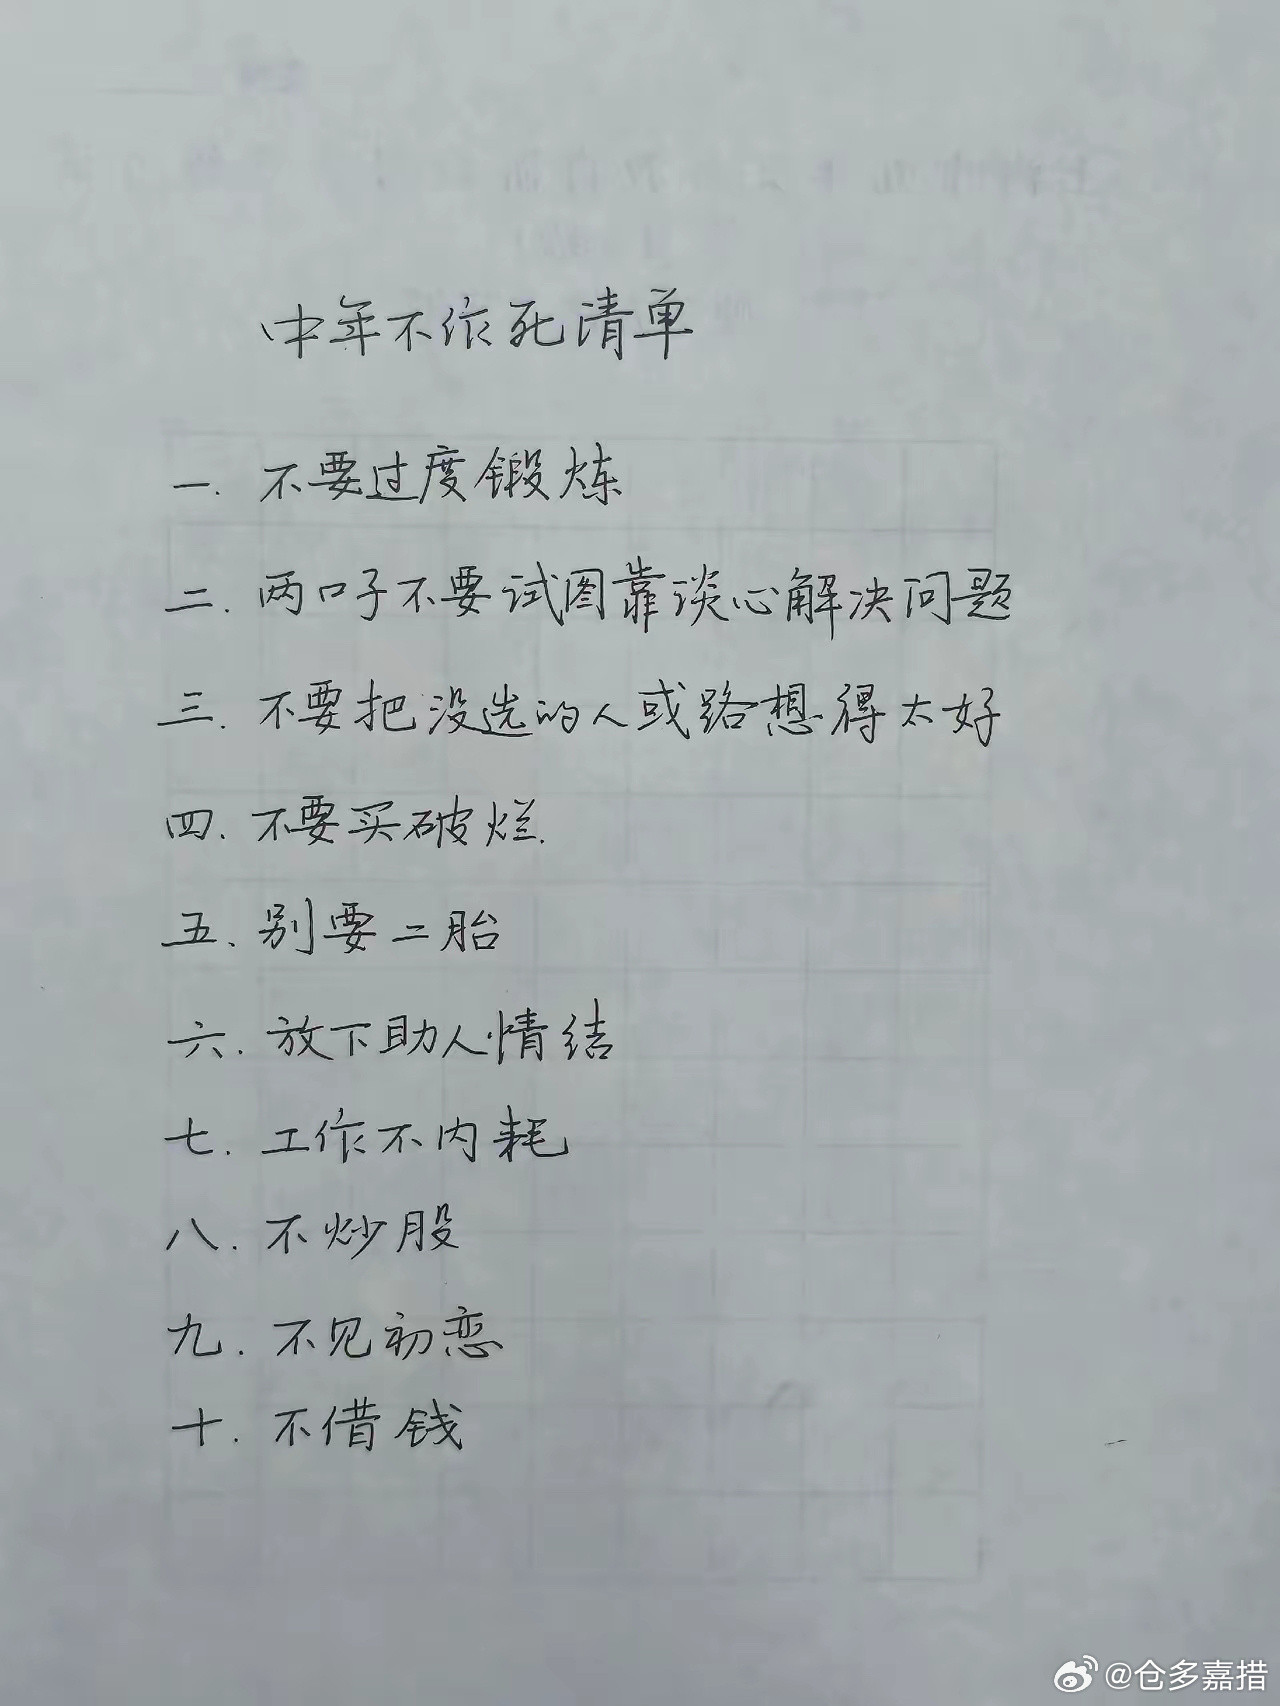 中年不作死清单
一.不要过度锻炼
二.两口子不要试图靠谈心解决问题
三.不要把没选的人或路想得太好
四.不要买破烂.
五、别要二胎
六.放下助人情结
七.工作不内耗
八.不炒股
九.不见初恋
十.不借钱
@仓多嘉措